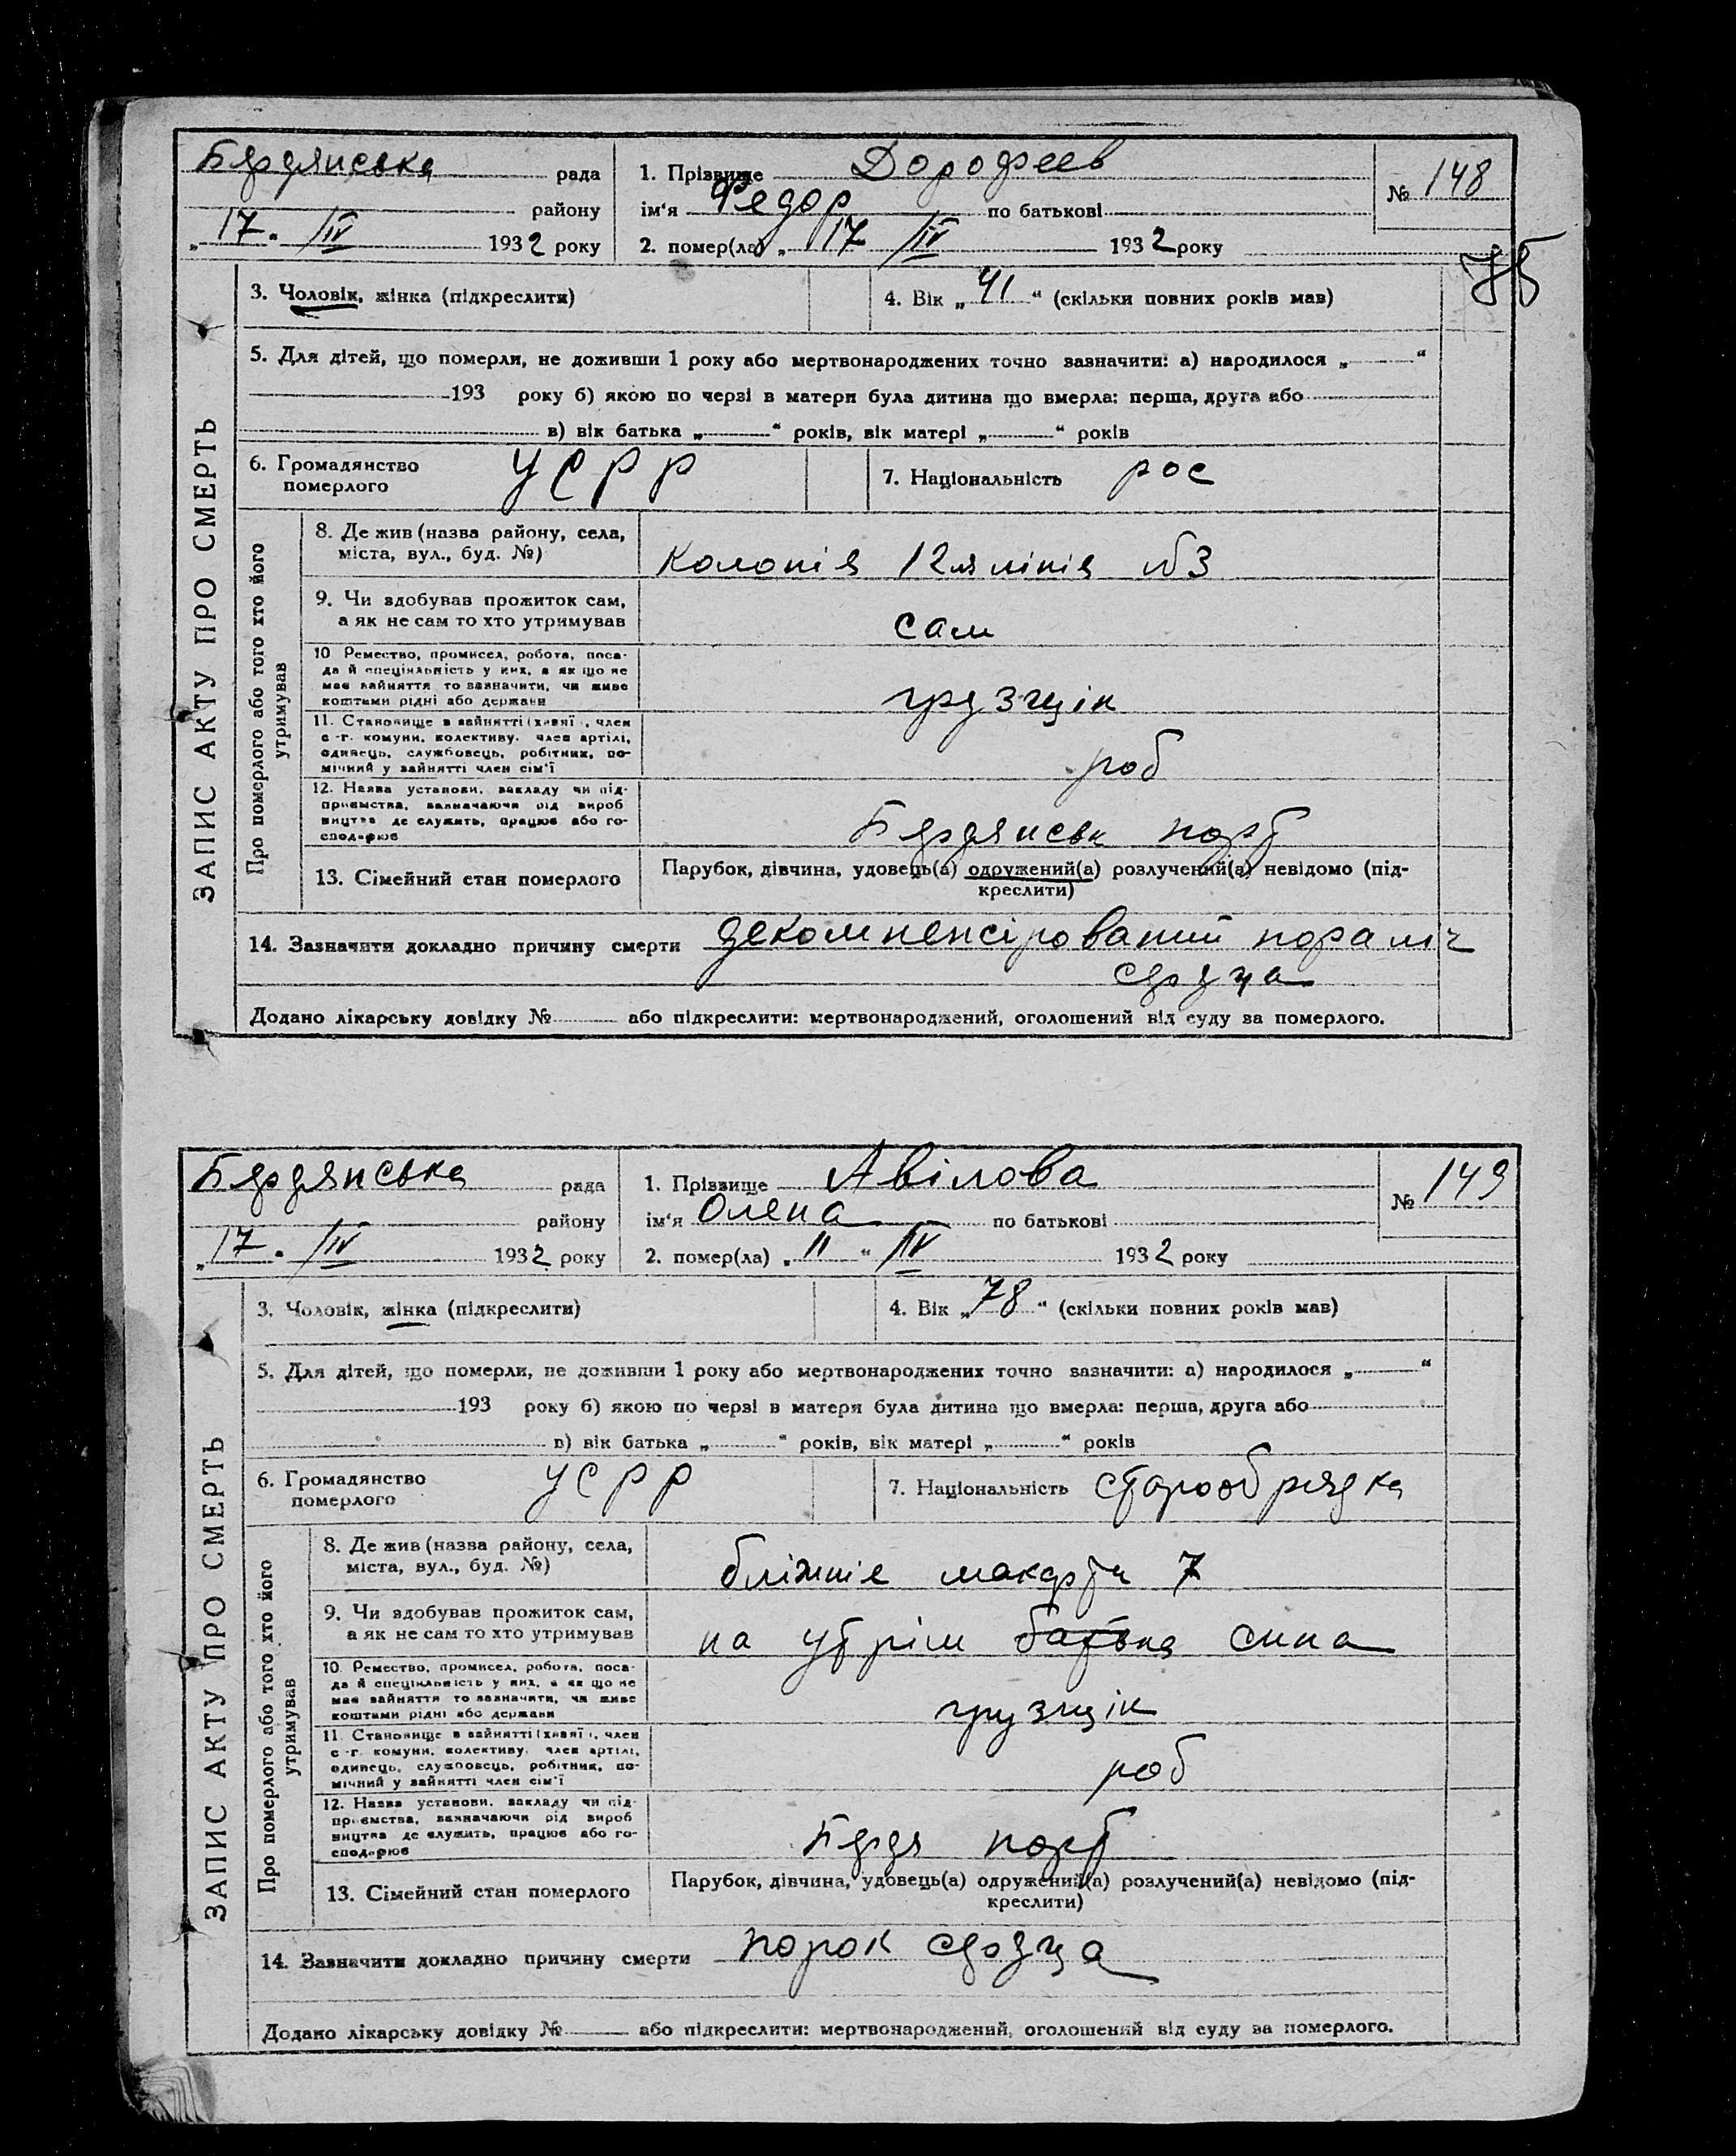 Бердянська рада
району
„17“ /IV 1932 року
1. Прізвище Дорофеев
ім‘я Федор по батькові
2. помер(ла) „17 /IV 1932 року
№ 148
75
3. Чоловік, жінка (підкреслити)
4. Вік „41“ (скільки повних років мав)
5. Для дітей, що померли, не доживши 1 року або мертвонароджених точно зазначити: а) народилося „ “
193 року б) якою по черзі в матери була дитина що вмерла: перша, друга або
в) вік батька „ “ років, вік матері „ “ років
6. Громадянство
померлого УСРР
7. Національність рос
ЗАПИС АКТУ ПРО СМЕРТЬ
Про померлого або того хто його
утримував
8. Де жив (назва району, села,
міста, вул., буд. №)
колонія 12ля лінія №3
9. Чи здобував прожиток сам,
а як не сам то хто утримував
сам
10. Ремество, промисел, робота, поса-
да й спеціяльність у них, а як що не
має зайняття то зазначити, чи живе
коштами рідні або держави
грузчик
11. Становище в зайнятті (хазяї), член
с.-г. комуни, колективу, член артілі,
одинець, службовець, робітник, по-
мічний у зайнятті член сім‘ї
роб
12. Назва установи, закладу чи під-
приємства, зазначаючи рід вироб
ництва де служить, працює або го-
сподарює
Бердянськ порт
13. Сімейний стан померлого
Парубок, дівчина, удовець(а) одружений(а) розлучений(а) невідомо (під-
креслити)
14. Зазначити докладно причину смерти декомпенсірований параліч
сердца
Додано лікарську довідку № або підкреслити: мертвонароджений, оголошений від суду за померлого.
Бердянська рада
району
„17“ /IV 1932 року
1. Прізвище Авілова
ім‘я Олена по батькові
2. помер(ла) „11“ IV 1932 року
№ 149
3. Чоловік, жінка (підкреслити)
4. Вік „78“ (скільки повних років мав)
5. Для дітей, що померли, не доживши 1 року або мертвонароджених точно зазначити: а) народилося „ “
193 року б) якою по черзі в матери була дитина що вмерла: перша, друга або
в) вік батька „ “ років, вік матері „ “ років
6. Громадянство
померлого УСРР
7. Національність старообрядка
ЗАПИС АКТУ ПРО СМЕРТЬ
Про померлого або того хто його
утримував
8. Де жив (назва району, села,
міста, вул., буд. №)
бліжніе макорти 7
9. Чи здобував прожиток сам,
а як не сам то хто утримував
на утрім батька сина
10. Ремество, промисел, робота, поса-
да й спеціяльність у них, а як що не
має зайняття то зазначити, чи живе
коштами рідні або держави
грузщік
11. Становище в зайнятті (хазяї), член
с.-г. комуни, колективу, член артілі,
одинець, службовець, робітник, по-
мічний у зайнятті член сім‘ї
роб
12. Назва установи, закладу чи під-
приємства, зазначаючи рід вироб
ництва де служить, працює або го-
сподарює
Бердя порт
13. Сімейний стан померлого
Парубок, дівчина, удовець(а) одружений(а) розлучений(а) невідомо (під-
креслити)
14. Зазначити докладно причину смерти порок сердца
Додано лікарську довідку № або підкреслити: мертвонароджений, оголошений від суду за померлого.